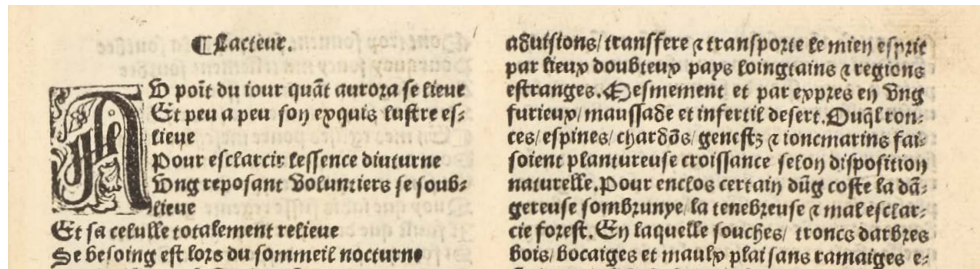 ¶Lacteur.
AV poīt du iour quāt aurora se lieue
Et peu a peu son exquis lustre es-
lieue
Pour esclarcir lessence diuturne
Vng reposant voluntiers se soub-
lieue
Et sa celulle totalement relieue
Se besoing est lors du sommeil nocturne
aduisions/ transfere ⁊ transporte le mien esprit
par lieux doubteux pays loingtains ⁊ regions
estranges. Mesmement et par expres en vng
furieux/ maussade et infertil desert. Ouq̄l ron-
ces/ espines/ chardōs/ genestz ⁊ ioncmarins fai-
soient plantureuse croissance selon disposition
naturelle. Pour enclos certain dūg coste la dā-
gereuse sombrunye/ la tenebreuse ⁊ mal esclar-
cie forest. En laquelle souches/ troncs darbres
bois/ bocaiges et maulx plaisans ramaiges e-